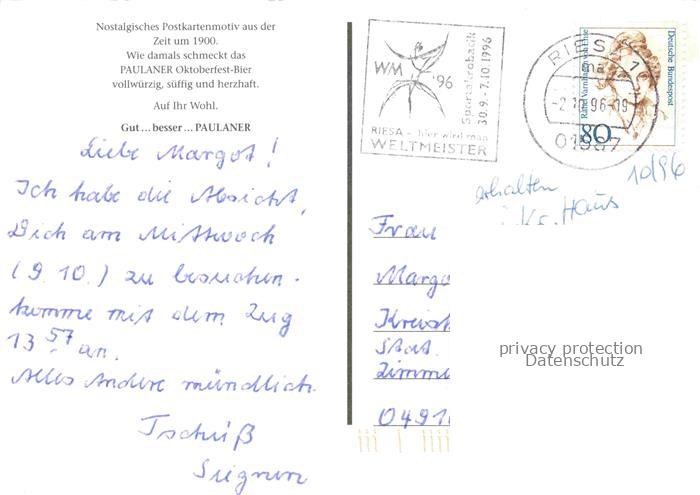 Nostalgisches Postkartenmotiv aus der
Zeit um 1900.
Wie damals schmeckt das
PAULANER Oktoberfest-Bier
vollwürzig, süffig und herzhaft.
Auf Ihr Wohl.
Gut...besser...PAULANER
Liebe Margot!
Ich habe die Absicht,
Dich am Mittwoch
(9.10.) zu besuchen.
komme mit dem Zug
13 57 an.
Alles Andere mündlich.
Tschüß
WM '96
Sportakrobatik
30.9.-7.10.1996
RIESA - hier wird man
WELTMEISTER
RIESA 1
ma
-2.10.96-09
01587
Deutsche Bundespost
Rahel Varnhagen von Ense
80
erhalten 10/96
Kr. Haus
Frau
Margo
Kreisk
Stat.
Zimme
0491
privacy protection
Datenschutz